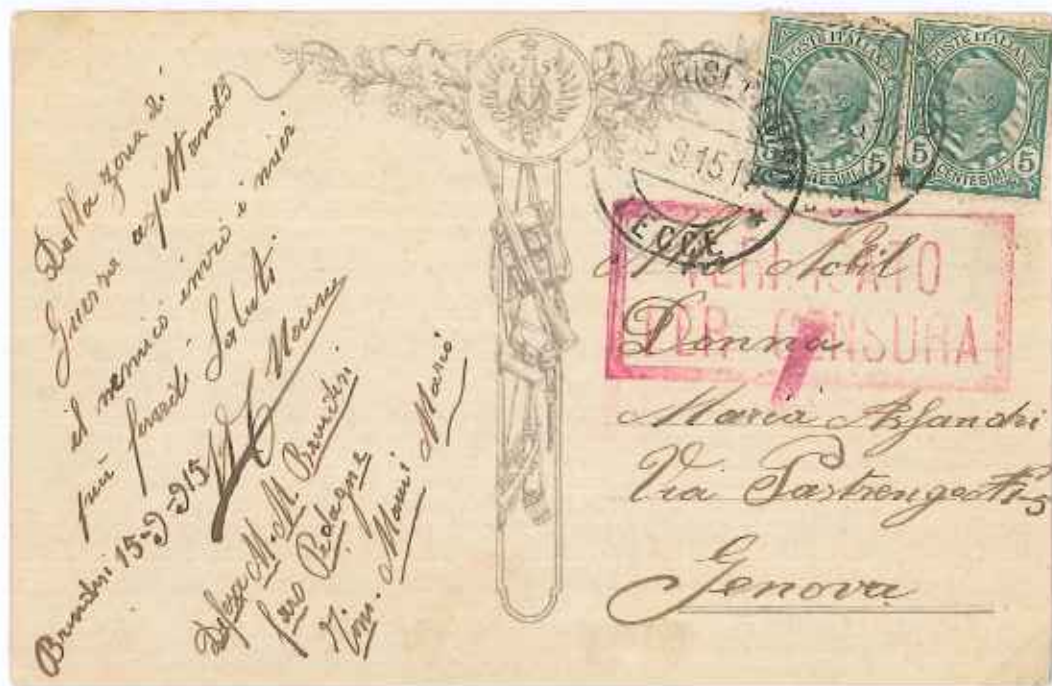 Dalla zona di
Guerra aspettando
il nemico invio i miei
più Saluti
Brindisi 15-9-915
Difesa M. M. Brindisi
faro Pedagne
Mario
POSTE ITALIANE
5 CENTESIMI 5
POSTE ITALIANE
5 CENTESIMI 5
9.15.1
LECCE
VERIFICATO
PER CENSURA
Alla Nobil
Donna
Maria
Via Pastrengo
Genova